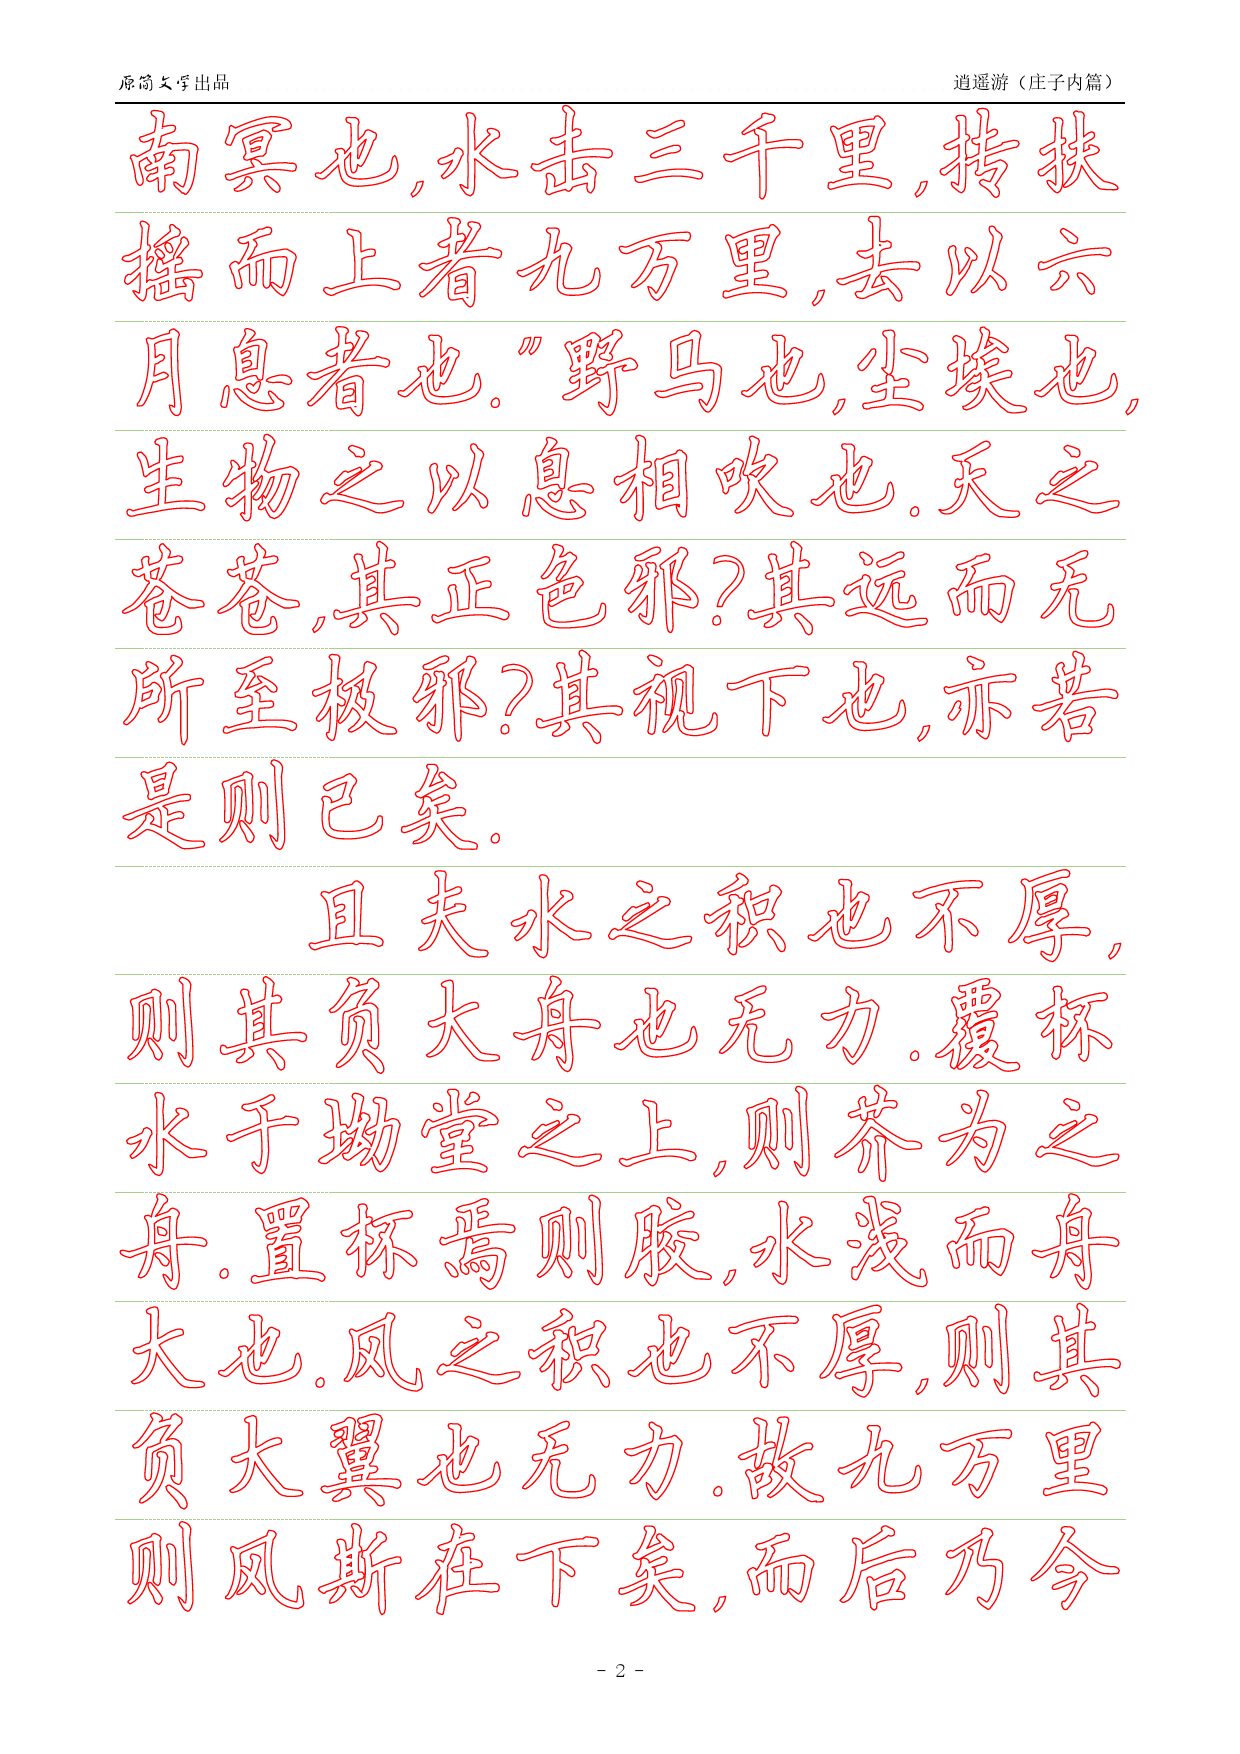 原简文学出品 逍遥游（庄子内篇）
南冥也,水击三千里,抟扶
摇而上者九万里,去以六
月息者也.”野马也,尘埃也,
生物之以息相吹也.天之
苍苍,其正色邪?其远而无
所至极邪?其视下也,亦若
是则已矣.
且夫水之积也不厚,
则其负大舟也无力.覆杯
水于坳堂之上,则芥为之
舟.置杯焉则胶,水浅而舟
大也.风之积也不厚,则其
负大翼也无力.故九万里
则风斯在下矣,而后乃今
- 2 -